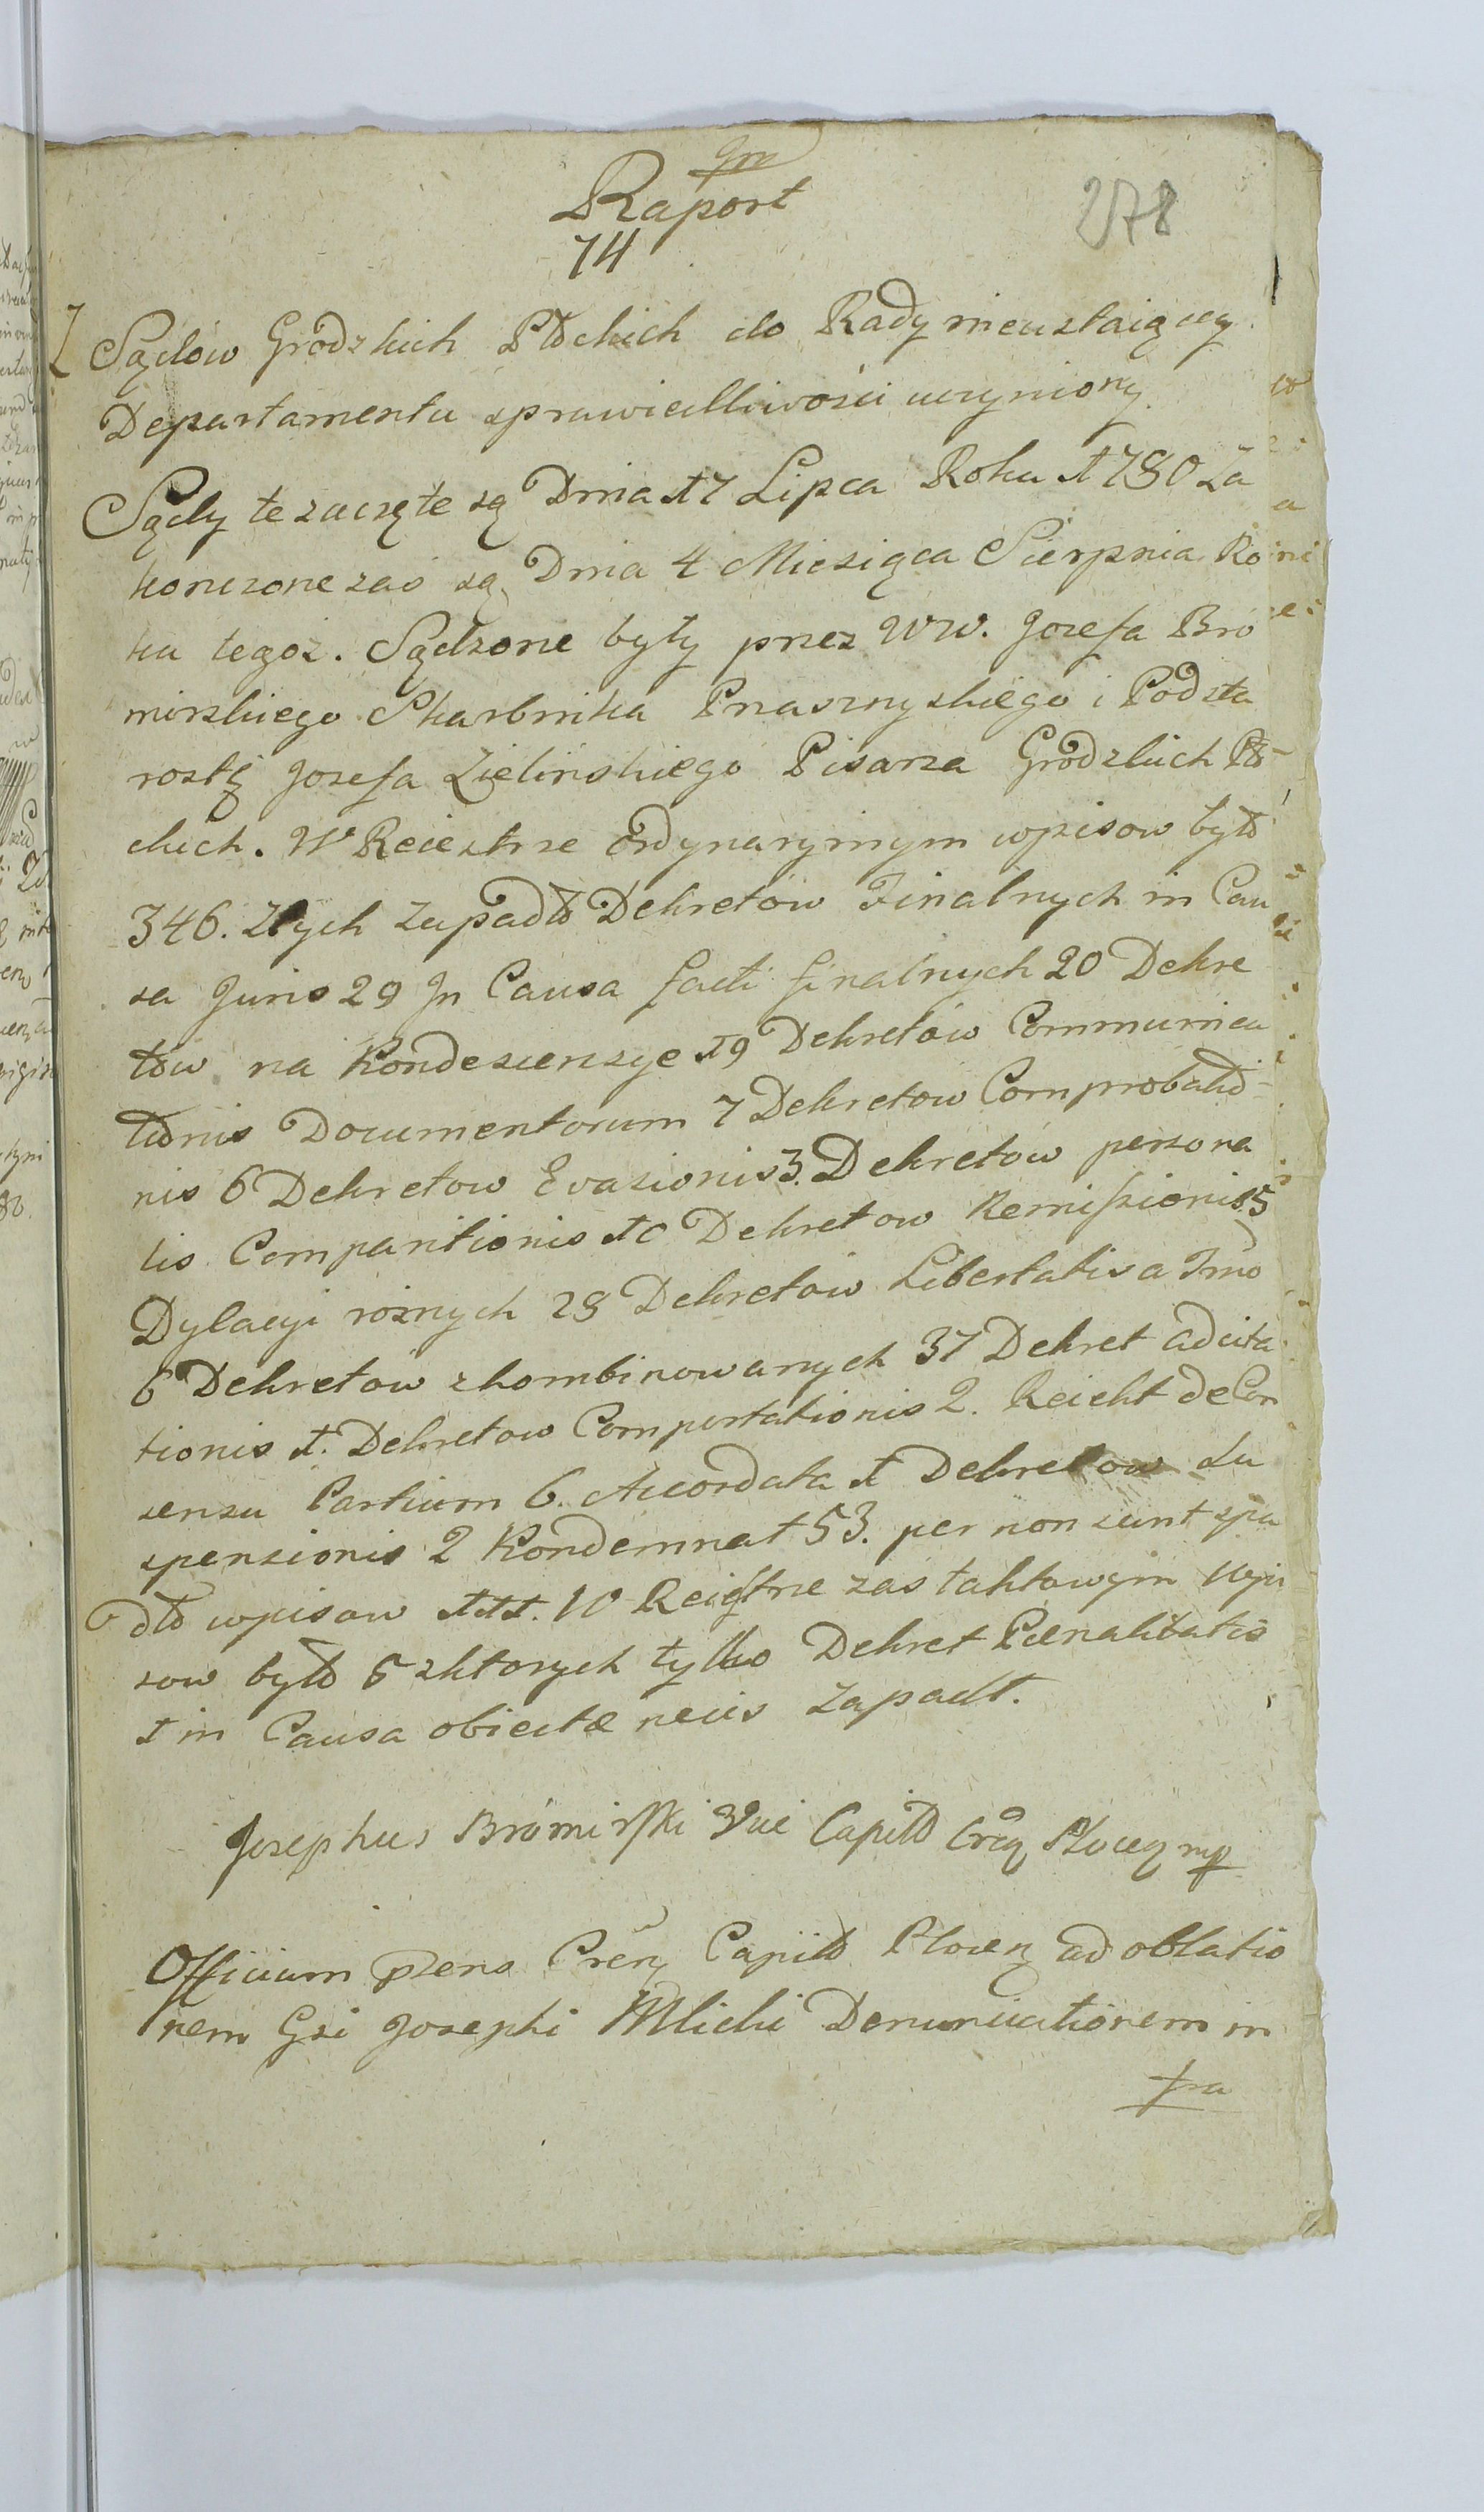 Raport
278
74
Z Sądow Grodzkich Płockich do Rady nieustaiącey
Departamentu sprawiedliwości uczyniony.
Sądy te zaczęte są Dnia 17 Lipca Roku 1780 Za
konczone zas są Dnia 4 Miesiąca Sierpnia Ro
ku tegoż. Sądzone były przez WW. Jozefa Bro
mirskiego Skarbnika Prasznyskiego i Podsta
rostę Jozefa Zielińskiego Pisarza Grodzkich Pło-
ckich. W Reiestrze ordynaryinym wpisow było
346. Z tych zapadło Dekretow Finalnych in Cau
sa Juris 29 In Causa facti finalnych 20 Dekre
tow na Kondescensye 19 Dekretow Communica
tionis Documentorum 7 Dekretow Comprobatio-
nis 6 Dekretow Evasionis 3. Dekretow persona
lis Comparitionis 10 Dekretow Remissionis 5
Dylacyi rożnych 28 Dekretow Libertatis a Tmo
6 Dekretow zkombinowanych 37 Dekret adcita
tionis 1. Dekretow Comportationis 2. Reiekt de Con
sensu Partium 6. Accordata 1 Dekretow Su
spensionis 2 Kondemnat 53. per non sunt spa
dło wpisow 111. W Reiestrze zas taktowym wpi
sow było 5 z ktorych tylko Dekret Pœnalitatis
1 in Causa obiectæ necis zapadł.
Josephus Bromirski Vice Capitō Crēn Płocen mp
Officium Prens Crēn Capitō Płocen ad oblatio
nem Gsi Josephi Mlicki Denunciationem in
fra